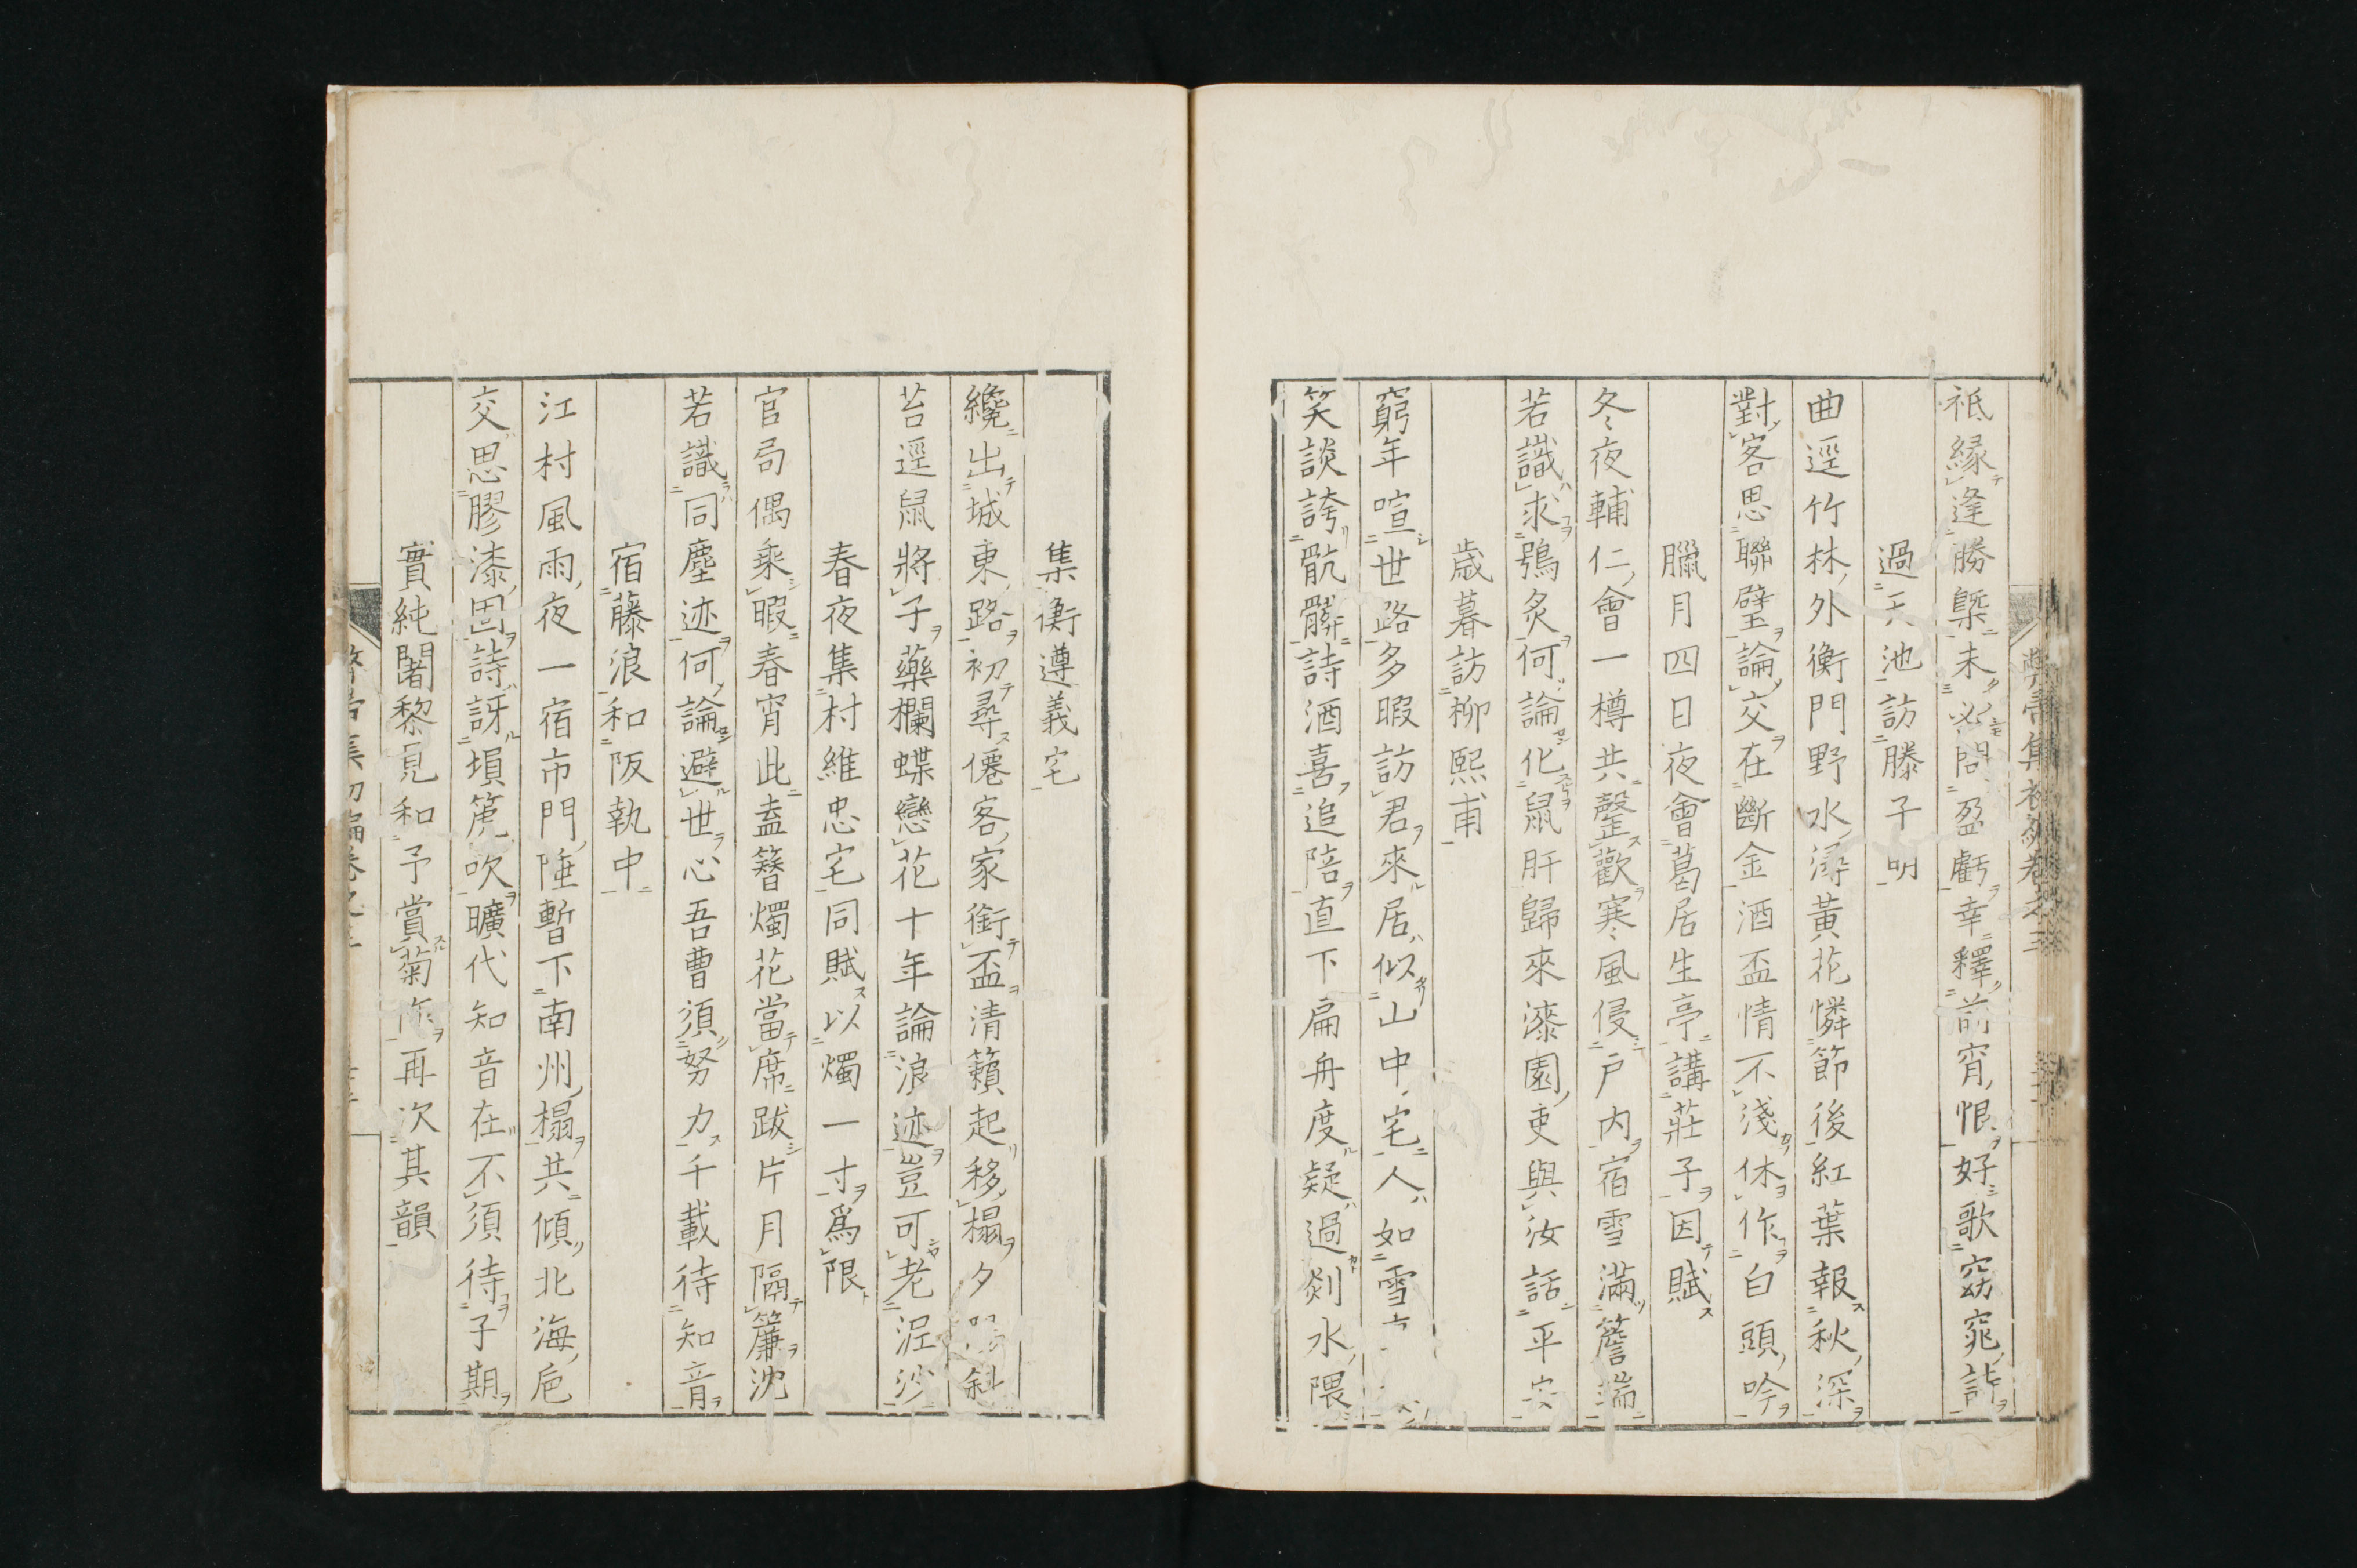 祗緣逢勝槩未必問盈虧幸釋前宵恨好歌窈窕詩
過天池訪滕子明
曲逕竹林外衡門野水潯黃花憐節後紅葉報秋深
對客思聯璧論交在斷金酒盃情不淺休作白頭吟
臘月四日夜會葛居生亭講莊子因賦
冬夜輔仁會一樽共罄歡寒風侵戶内宿雪滿簷端
若識求鴞炙何論化鼠肝歸來漆園吏與汝話平
歲暮訪柳熙甫
窮年喧世路多暇訪君來居似山中宅人如雪
笑談誇骯髒詩酒喜追陪直下扁舟度疑過剡水隈
集衡遵義宅
纔出城東路初尋僊客家銜盃清籟起移榻夕斜
苔逕鼠將子藥欄蝶戀花十年論浪迹豈可老泥沙
春夜集村維忠宅同賦以燭一寸爲限
官局偶乘暇春宵此盍簪燭花當席跋片月隔簾沈
若識同塵迹何論避世心吾曹須努力千載待知音
宿藤浪和阪執中
江村風雨夜一宿市門陲暫下南州榻共傾北海巵
交思膠漆固詩訝塤箎吹曠代知音在不須待子期
實純闍黎見和予賞菊作再次其韻
集初編卷之